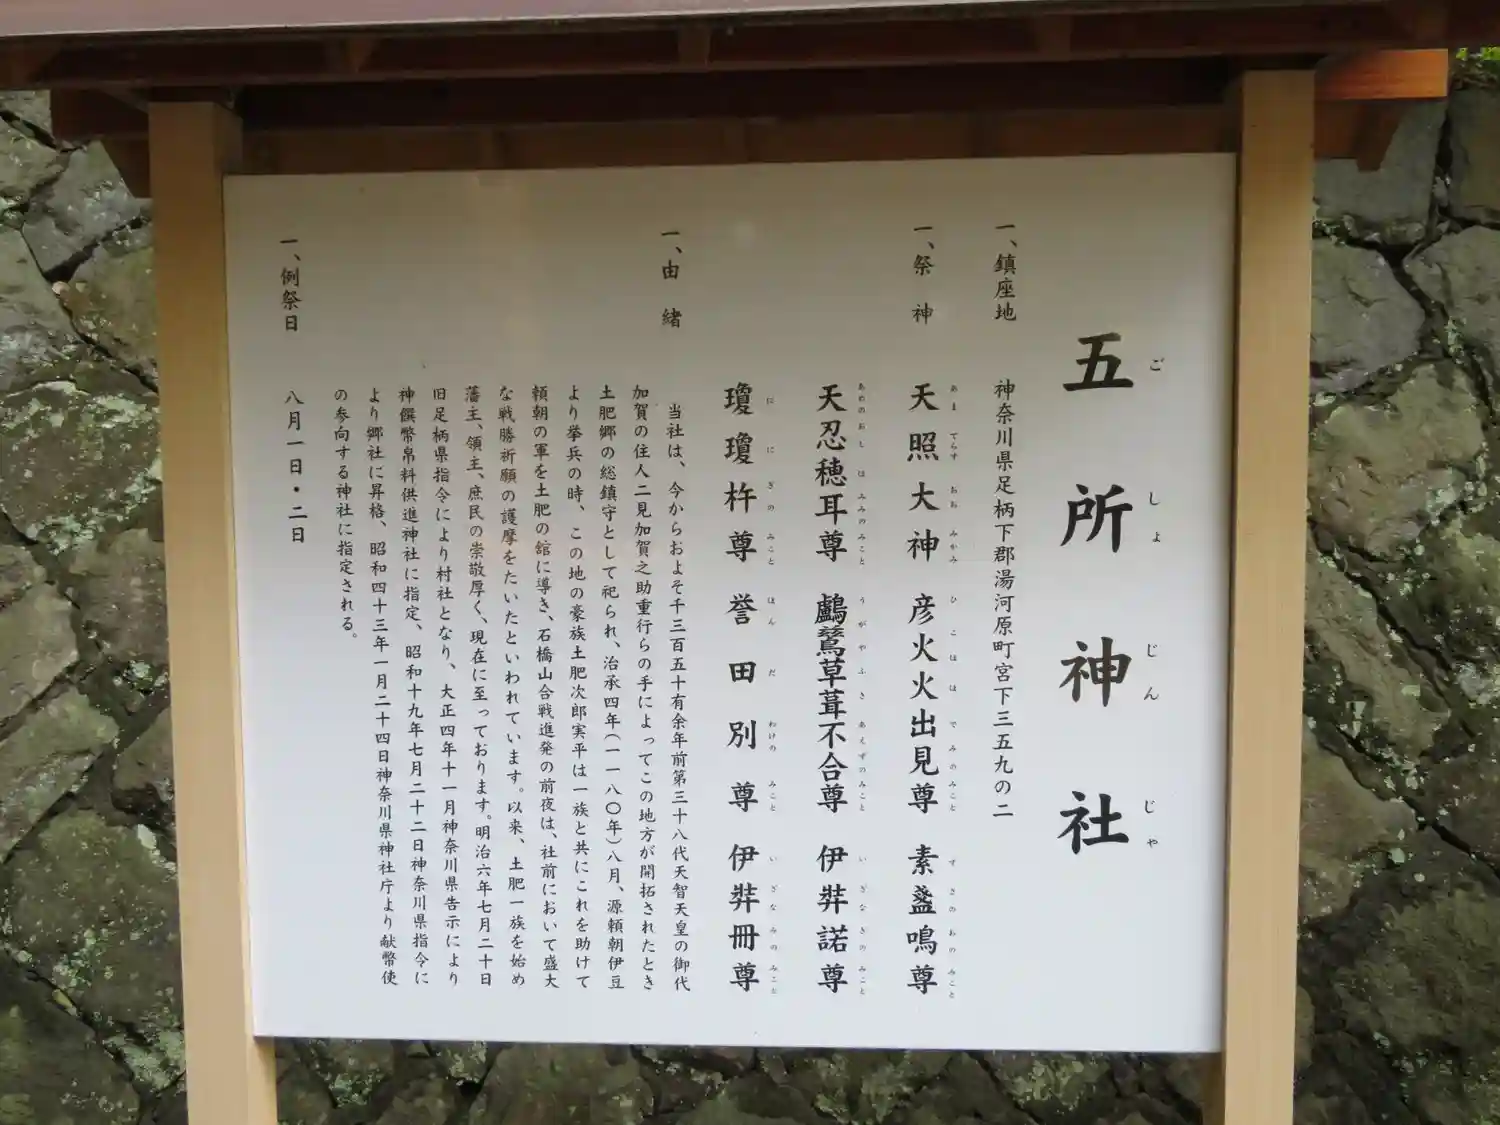 五所神社
ごしょじんじゃ
一、鎮座地 神奈川県足柄下郡湯河原町宮下三五九の二
一、祭神 天照大神 彦火火出見尊 素盞嗚尊
あまてらすおおみかみ ひこほほでみのみこと すさのおのみこと
天忍穂耳尊 鸕鶿草葺不合尊 伊弉諾尊
あめのおしほみみのみこと うがやふきあえずのみこと いざなぎのみこと
瓊瓊杵尊 誉田別尊 伊弉冊尊
ににぎのみこと ほんだわけのみこと いざなみのみこと
一、由緒
当社は、今からおよそ千三百五十有余年前第三十八代天智天皇の御代
加賀の住人二見加賀之助重行らの手によってこの地方が開拓されたとき
土肥郷の総鎮守として祀られ、治承四年(一一八〇年)八月、源頼朝伊豆
より挙兵の時、この地の豪族土肥次郎実平は一族と共にこれを助けて
頼朝の軍を土肥の館に導き、石橋山合戦進発の前夜は、社前において盛大
な戦勝祈願の護摩をたいたといわれています。以来、土肥一族を始め
藩主、領主、庶民の崇敬厚く、現在に至っております。明治六年七月二十日
旧足柄県指令により村社となり、大正四年十一月神奈川県告示により
神饌幣帛料供進神社に指定、昭和十九年七月二十二日神奈川県指令に
より郷社に昇格、昭和四十三年一月二十四日神奈川県神社庁より献幣使
の参向する神社に指定される。
一、例祭日 八月一日・二日